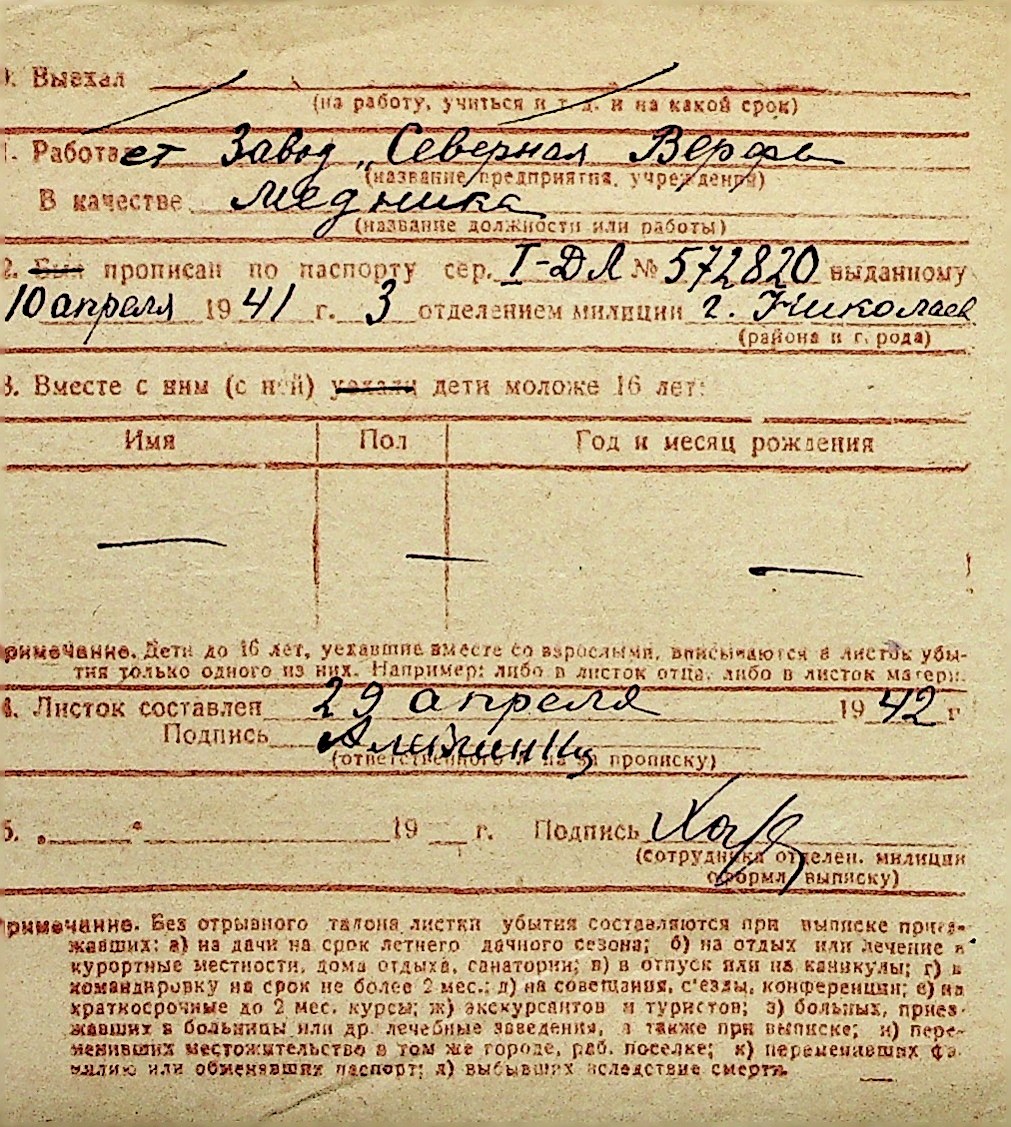 . Выехал
(на работу, учиться и т. д. и на какой срок)
1. Работает Завод „Северная Верфь
(название предприятия, учреждения)
В качестве медника
(название должности или работы)
2. Был прописан по паспорту сер. I-ДЛ № 572820 выданному
10 апреля 1941 г. 3 отделением милиции г. Николаев
(района и города)
3. Вместе с ним (с ней) уехали дети моложе 16 лет:
Имя Пол Год и месяц рождения
— — —
римечание. Дети до 16 лет, уехавшие вместе со взрослыми, вписываются в листок убы-
тия только одного из них. Например: либо в листок отца, либо в листок матери.
4. Листок составлен 29 апреля 1942 г
Подпись
(ответственного лица за прописку)
5. „ “ 19 г. Подпись
(сотрудника отделен. милиции
оформл. выписку)
римечание. Без отрывного талона листки убытия составляются при выписке приез-
жавших: а) на дачи на срок летнего дачного сезона; б) на отдых или лечение в
курортные местности, дома отдыха, санатории; в) в отпуск или на каникулы; г) в
командировку на срок не более 2 мес.; д) на совещания, с'езды, конференции; е) на
краткосрочные до 2 мес. курсы; ж) экскурсантов и туристов; з) больных, приез-
жавших в больницы или др. лечебные заведения, а также при выписке; и) пере-
менивших местожительство в том же городе, раб. поселке; к) переменивших фа-
милию или обменявших паспорт; л) выбывших вследствие смерти.